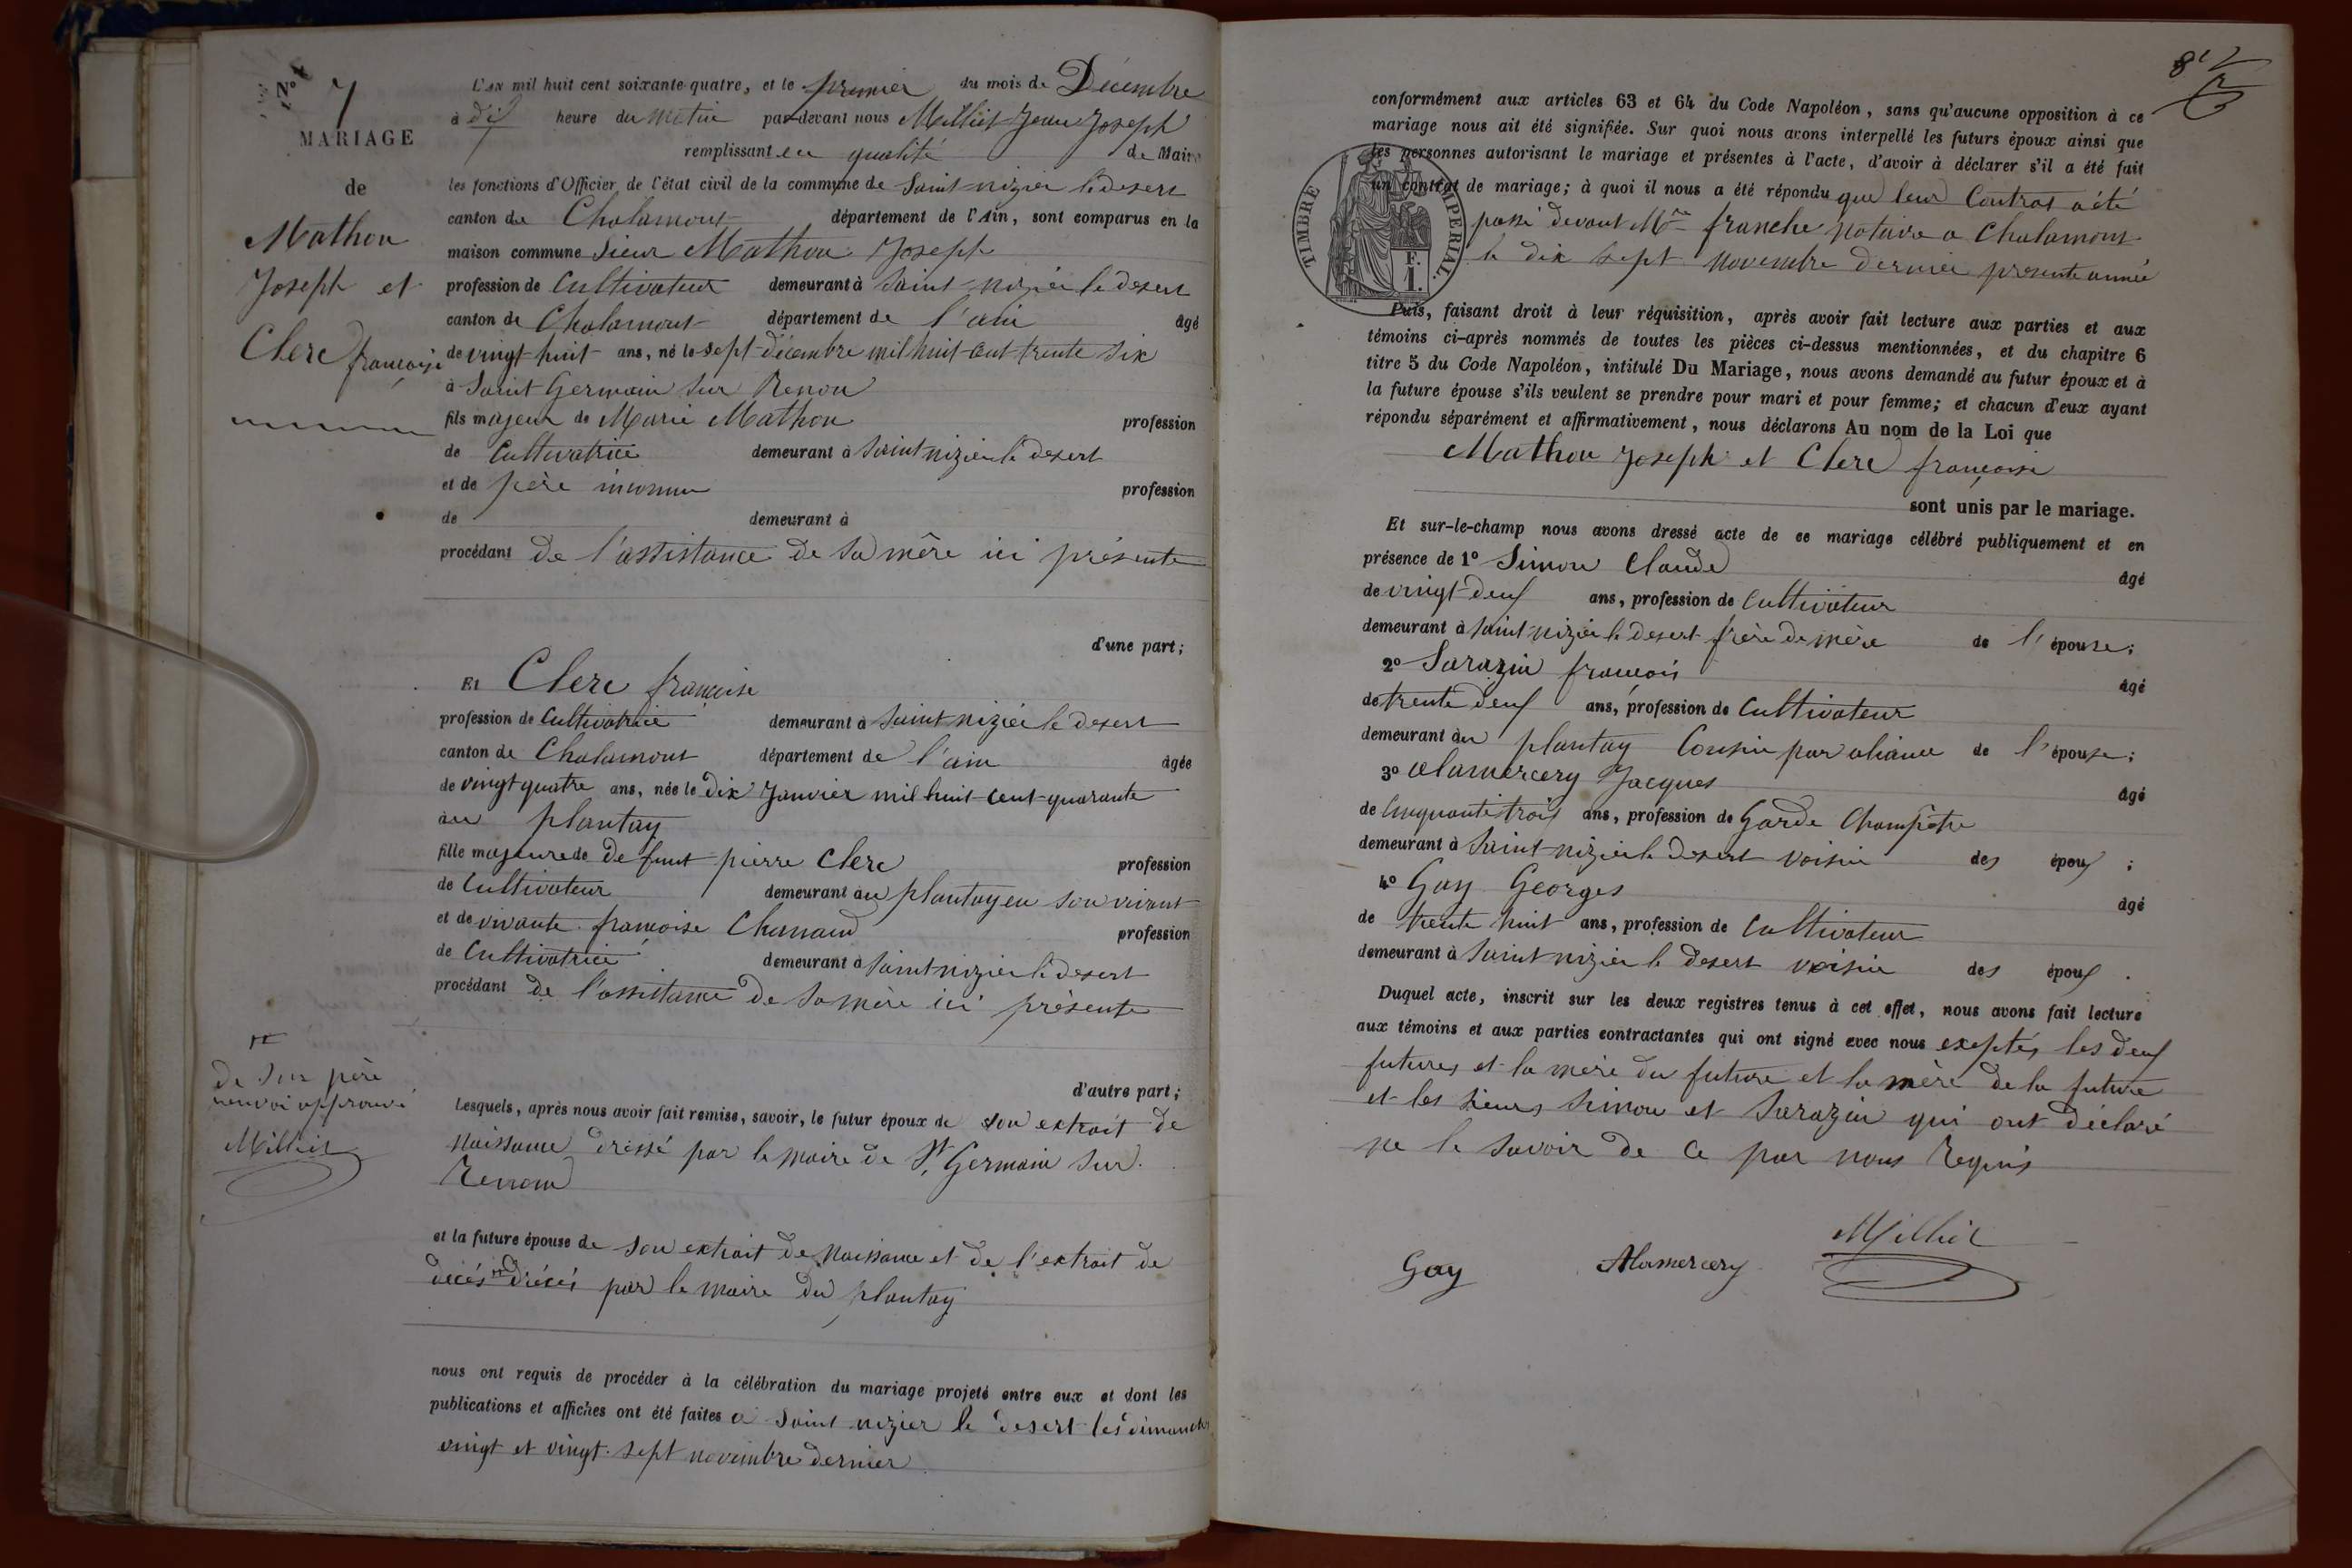 N.º 7
MARIAGE
de
Mathon
Joseph et
Clerc françoise
L'AN mil huit cent soixante-quatre, et le premier du mois de Décembre
à dix heure du matin par-devant nous Milliet Jean Joseph
remplissant en qualité de Maire
les fonctions d'Officier de l'état civil de la commune de Saint nizier le desert
canton de Chalamont département de l'Ain, sont comparus en la
maison commune Sieur Mathon Joseph
profession de Cultivateur demeurant à Saint nizier le desert
canton de Chalamont département de l'ain âgé
de vingt huit ans, né le sept décembre mil huit cent trente six
à Saint Germain sur Renon
fils majeur de Marie Mathon profession
de Cultivatrice demeurant à Saint nizier le desert
et de père inconnu profession
de demeurant à
procédant de l'asstistance de sa mère ici présente
d'une part;
Et Clerc françoise
profession de Cultivatrice demeurant à Saint nizier le desert
canton de Chalamont département de l'ain âgée
de vingt quatre ans, née le dix Janvier mil huit cent quarante
au plantay
fille majeure de defunt pierre Clerc profession
de Cultivateur demeurant au plantay en son vivant
et de vivante françoise profession
de Cultivatrice demeurant à Saint nizier le desert
procédant de l'assistance de sa mère ici présente
d'autre part;
de son père
renvoi approuvé
Milliet
Lesquels, après nous avoir fait remise, savoir, le futur époux de son extrait de
naissance dressé par le maire de St Germain sur
Renom
et la future épouse de son extrait de naissance et de l'extrait de
décés par le maire du plantay
nous ont requis de procéder à la célébration du mariage projeté entre eux et dont les
publications et affiches ont été faites a Saint nizier le desert les dimanches
vingt et vingt sept novembre dernier
conformément aux articles 63 et 64 du Code Napoléon, sans qu'aucune opposition à ce
mariage nous ait été signifiée. Sur quoi nous avons interpellé les futurs époux ainsi que
les personnes autorisant le mariage et présentes à l'acte, d'avoir à déclarer s'il a été fait
un contrat de mariage; à quoi il nous a été répondu que leur Contrat a été
passé devant Mre franche notaire a Chalamont
le dix sept novembre dernier presente année
TIMBRE IMPERIAL.
F.
1.
Puis, faisant droit à leur réquisition, après avoir fait lecture aux parties et aux
témoins ci-après nommés de toutes les pièces ci-dessus mentionnées, et du chapitre 6
titre 5 du Code Napoléon, intitulé Du Mariage, nous avons demandé au futur époux et à
la future épouse s'ils veulent se prendre pour mari et pour femme; et chacun d'eux ayant
répondu séparément et affirmativement, nous déclarons Au nom de la Loi que
Mathon Joseph et Clerc françoise
sont unis par le mariage.
Et sur-le-champ nous avons dressé acte de ce mariage célébré publiquement et en
présence de 1º Simon Claude âgé
de vingt deux ans, profession de Cultivateur
demeurant à Saint nizier le desert frère de mère de l'épouse;
2º Sarazin françois âgé
de trente deux ans, profession de Cultivateur
demeurant au plantay Cousin par aliance de l'épouse;
3º Alamercery Jacques âgé
de Cinquante trois ans, profession de Garde Champêtre
demeurant à Saint nizier le desert voisin des époux;
4º Gay Georges âgé
de trente huit ans, profession de Cultivateur
demeurant à Saint nizier le desert voisin des époux.
Duquel acte, inscrit sur les deux registres tenus à cet effet, nous avons fait lecture
aux témoins et aux parties contractantes qui ont signé avec nous exeptés les deux
futures et la mère du future et la mère de la future
et les sieurs Simon et Sarazin qui ont déclaré
ne le savoir de ce par nous Requis
Gay Alamercery Milliet